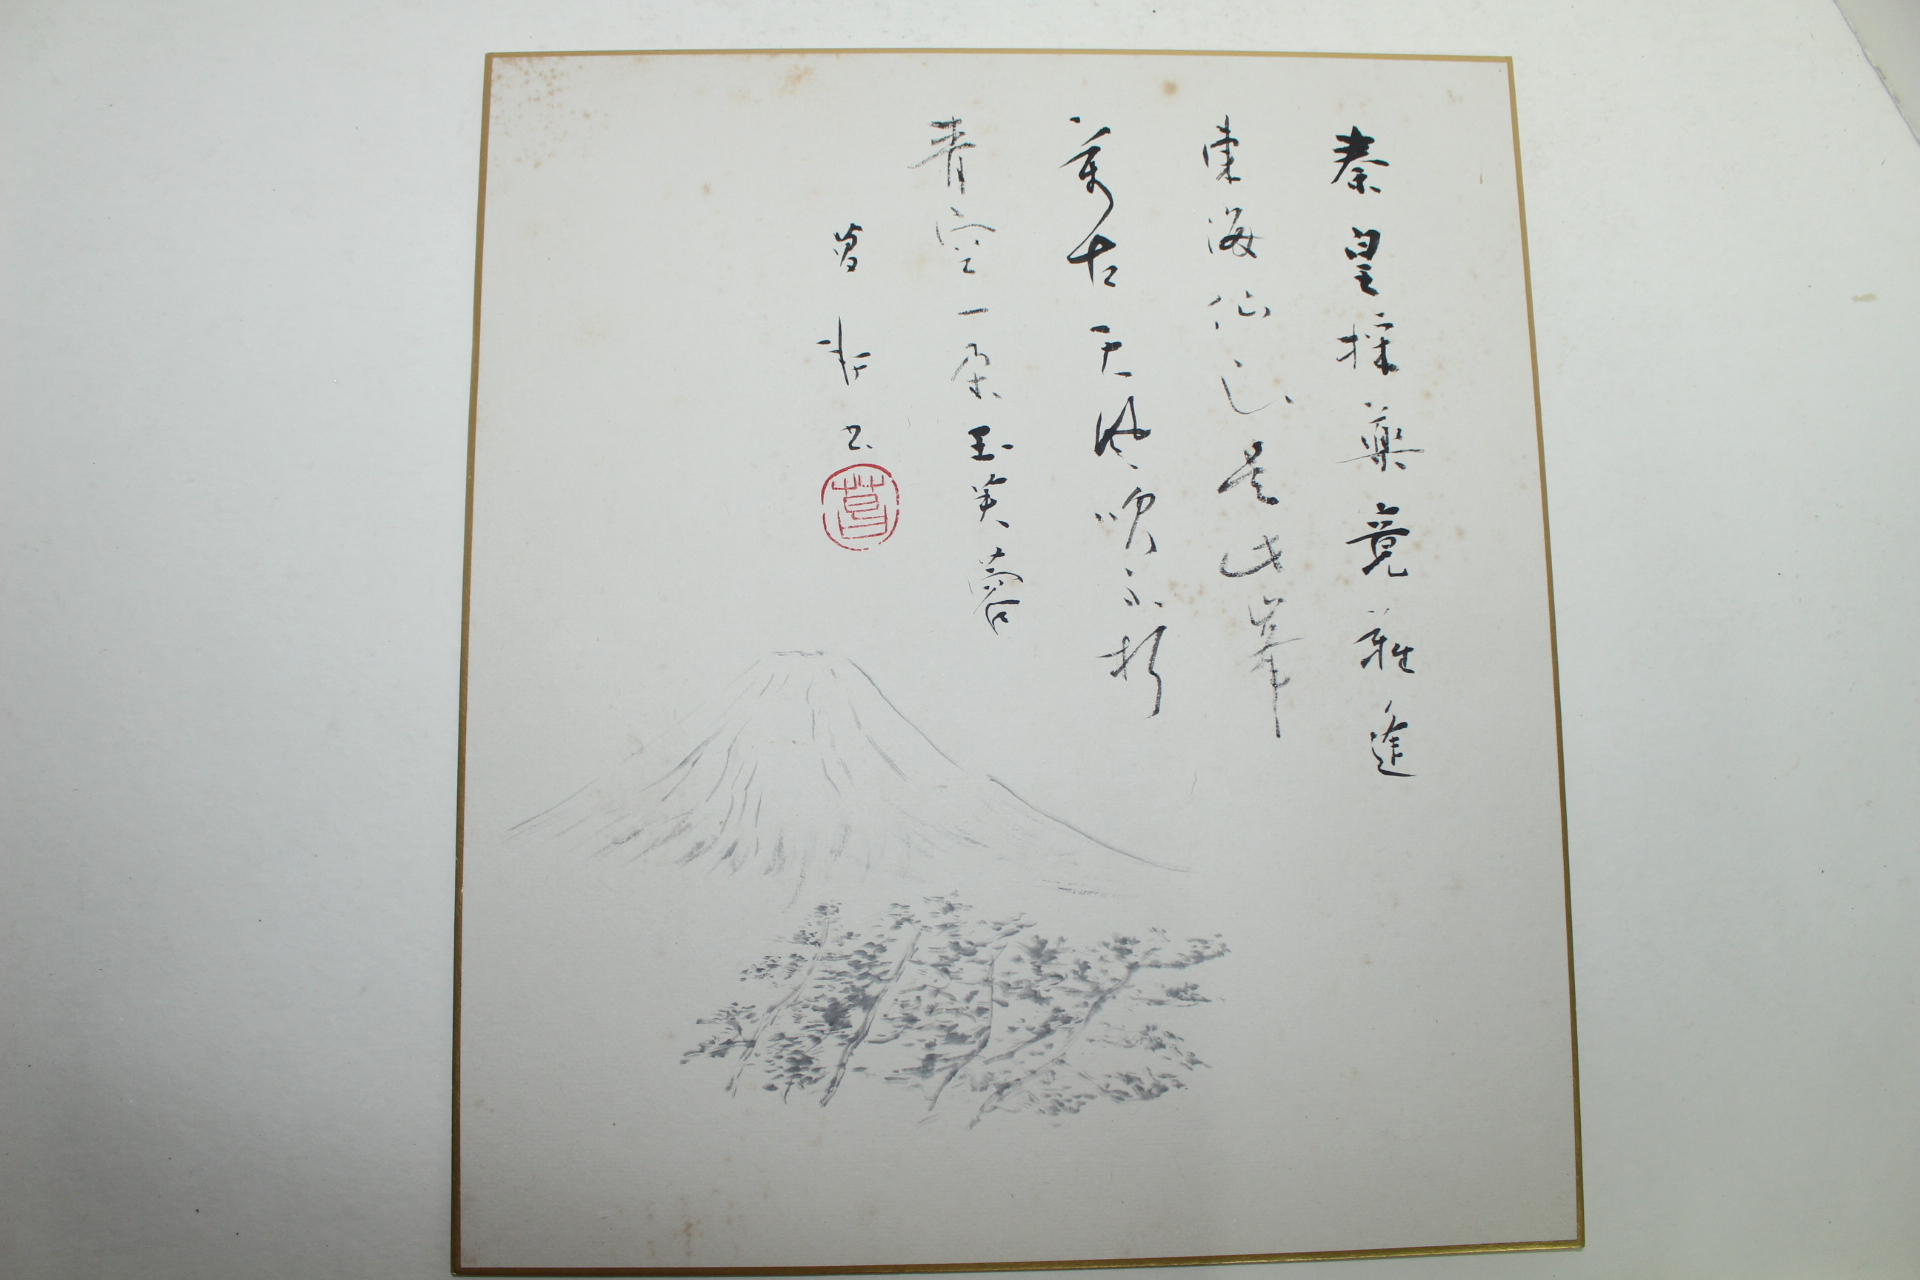 秦皇採藥竟難逢
東海仙山是此峯
萬古天風吹不折
青空一朶玉芙蓉